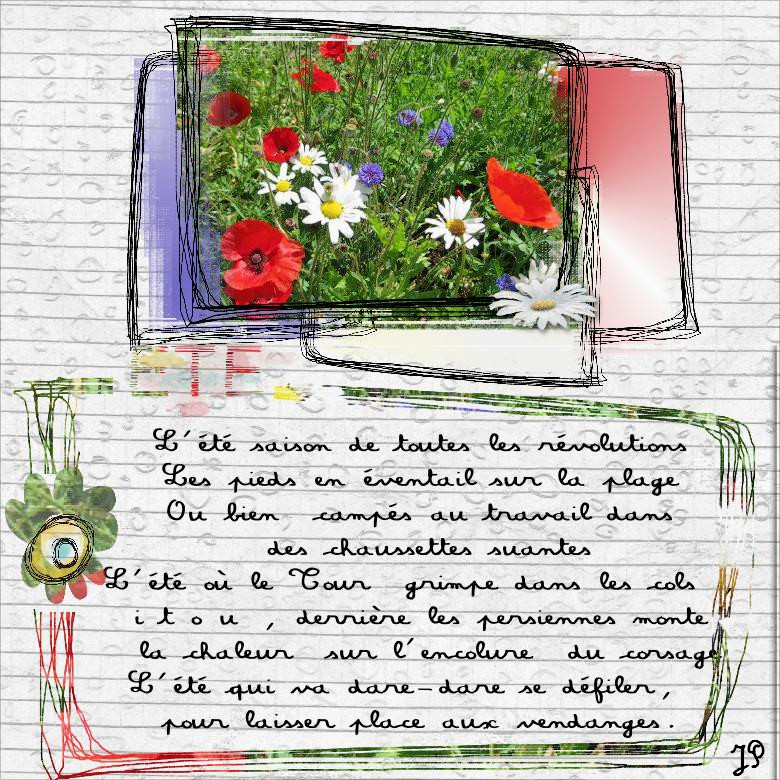 L'été saison de toutes les révolutions
Les pieds en éventail sur la plage
Ou bien campés au travail dans
des chaussettes suantes
L'été où le Tour grimpe dans les cols
i t o u , derrière les persiennes monte
la chaleur sur l'encolure du corsage
L'été qui va dare-dare se défiler,
pour laisser place aux vendanges.
JP